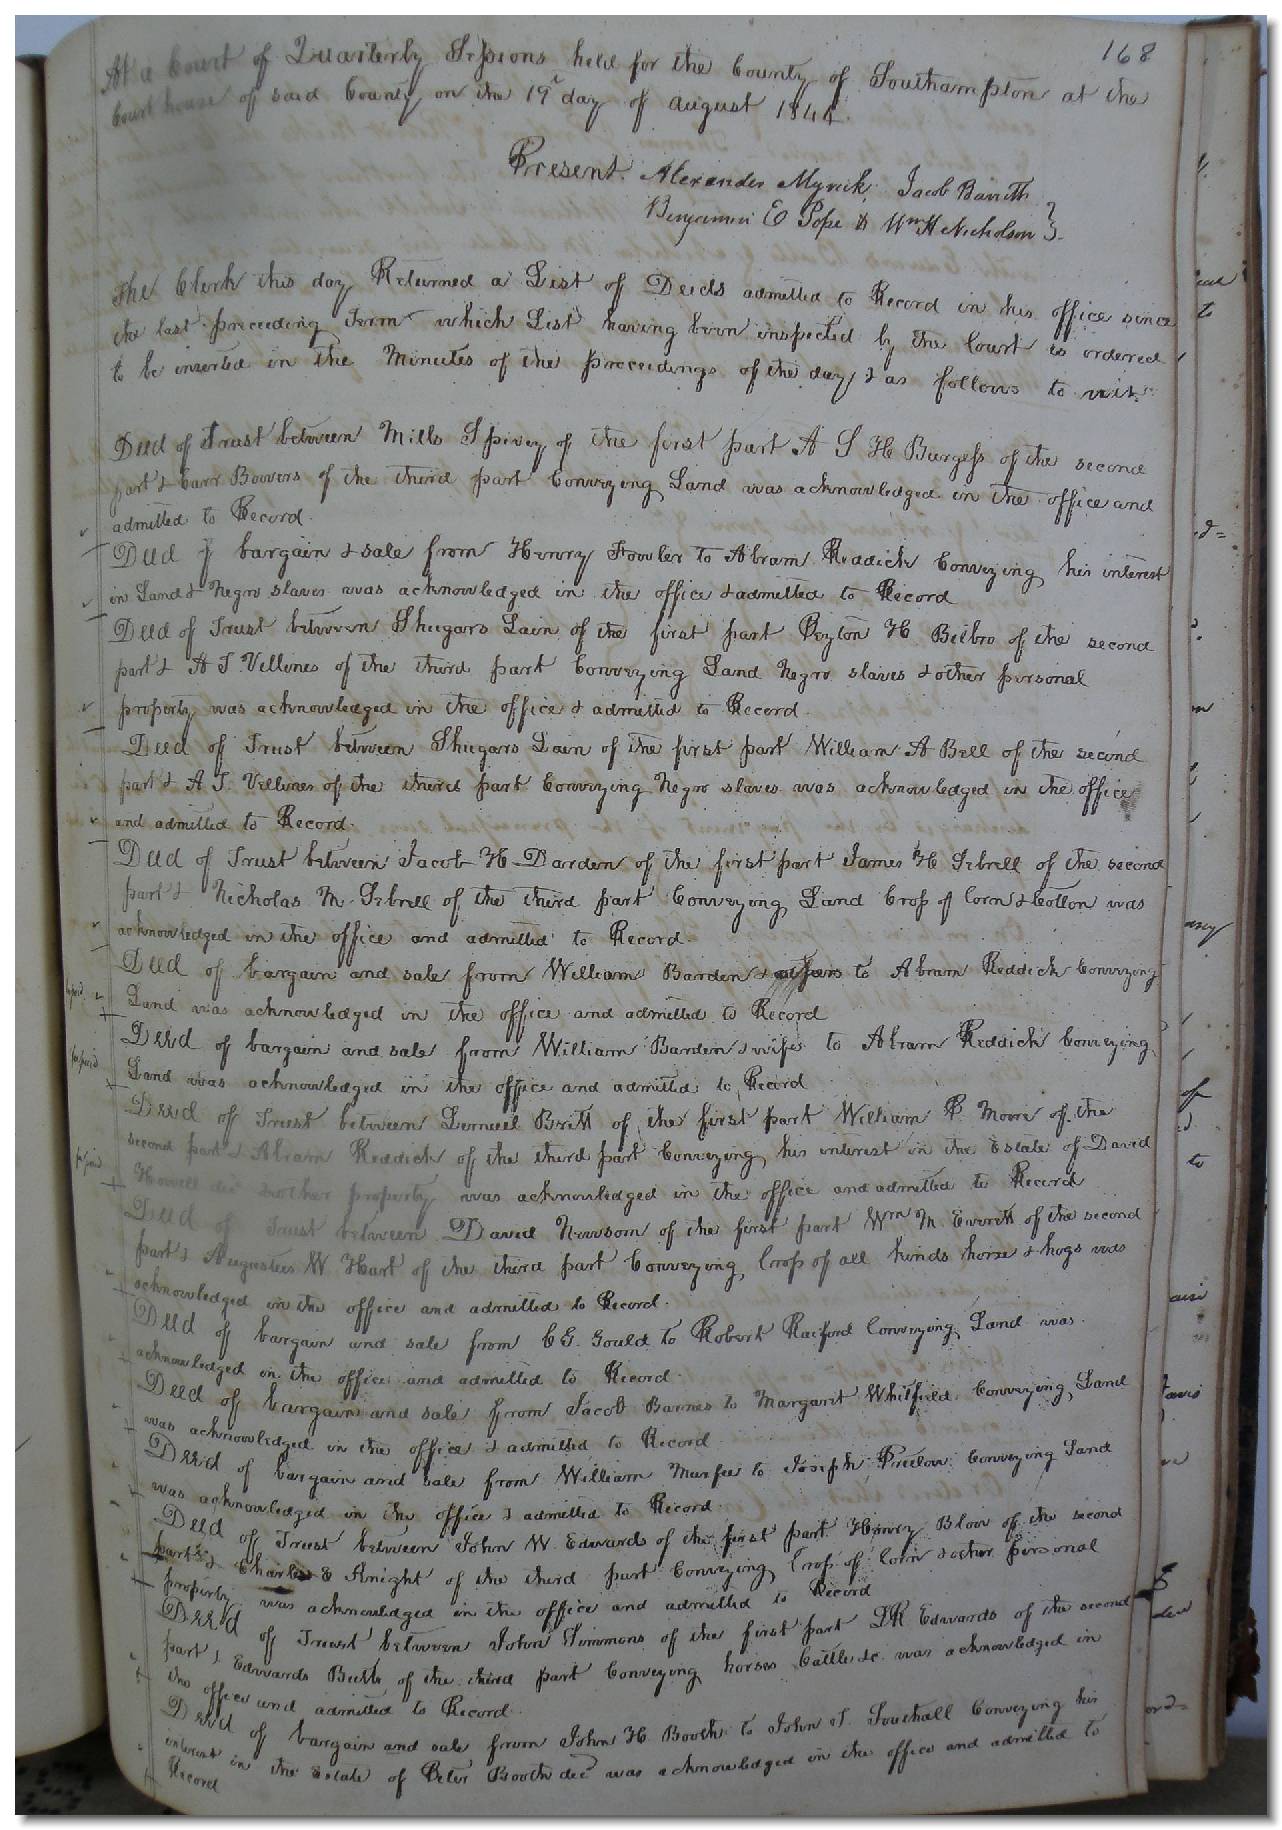 168
At a Court of Quarterly Sessions held for the County of Southampton at the
Court house of said County on the 19th day of August 1844.
Present. Alexander Myrick, Jacob Barrett
Benjamin E Pope & Wm H Nicholson }.
The Clerk this day Returned a List of Deeds admitted to Record in his office since
the last preceeding Term which List having been inspected by the Court is ordered
to be inserted in the Minutes of the proceedings of the day & as follows to wit.
Deed of Trust between Mills Spivey of the first part A S H Burgess of the second
part & Carr Bowers of the third part Conveying Land was acknowledged in the office and
admitted to Record.
Deed of bargain & sale from Henry Fowler to Abram Reddick Conveying his interest
in Land & Negro slaves was acknowledged in the office & admitted to Record
Deed of Trust between Shugars Lain of the first part Peyton H Bilbro of the second
part & A T Vellines of the third part Conveying Land Negro slaves & other personal
property was acknowledged in the office & admitted to Record.
Deed of Trust between Shugars Lain of the first part William A Bell of the second
part & A T. Vellines of the third part Conveying Negro slaves was acknowledged in the office
and admitted to Record.
Deed of Trust between Jacob H Darden of the first part James H Sebrell of the second
part & Nicholas M Sebrell of the third part Conveying Land Crop of Corn & Cotton was
acknowledged in the office and admitted to Record.
Deed of bargain and sale from William Barden & to Abram Reddick Conveying
Land was acknowledged in the office and admitted to Record
Deed of bargain and sale from William Barden & wife to Abram Reddick Conveying
Land was acknowledged in the office and admitted to Record
Deed of Trust between Lemuel Britt of the first part William P Moore of the
second part & Abram Reddick of the third part Conveying his interest in the Estate of David
Howell decd & other property was acknowledged in the office and admitted to Record
Deed of Trust between David Newsom of the first part Wm M. Everitt of the second
part & Augustus W Hart of the third part Conveying Crop of all kinds horse & hogs was
acknowledged in the office and admitted to Record.
Deed of bargain and sale from C G. Gould to Robert Raiford Conveying Land was
acknowledged in the office and admitted to Record.
Deed of bargain and sale from Jacob Barnes to Margaret Whitfield Conveying Land
was acknowledged in the office & admitted to Record
Deed of bargain and sale from William Murfee to Joseph Prelow Conveying Land
was acknowledged in the office & admitted to Record.
Deed of Trust between John W. Edwards of the first part Henry Blow of the second
part & Charles E Knight of the third part Conveying Crop of Corn & other personal
property was acknowledged in the office and admitted to Record
Deed of Trust between John Simmons of the first part D R Edwards of the second
part & Edwards Butts of the third part Conveying horses Cattle &c was acknowledged in
the office and admitted to Record.
Deed of bargain and sale from John H Booth to John T. Southall Conveying his
interest in the Estate of Peter Booth decd was acknowledged in the office and admitted to
Record